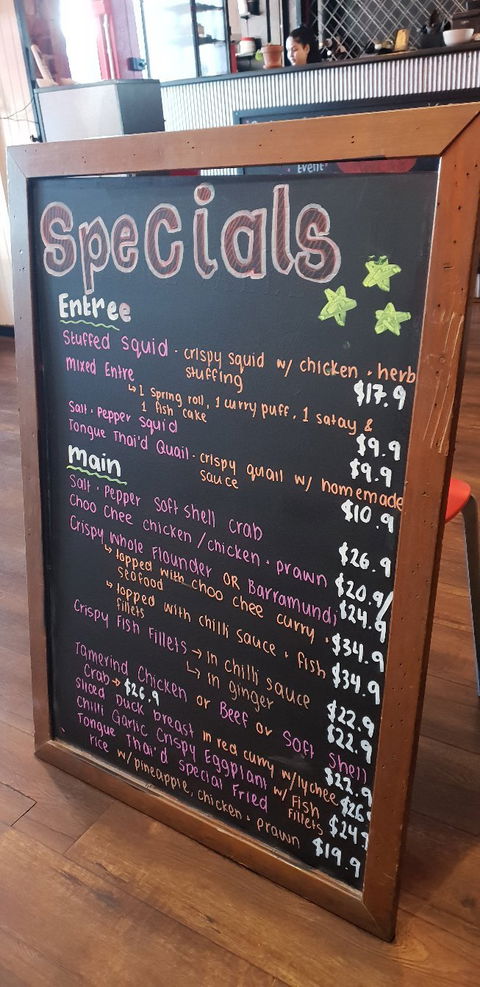 Event
Specials
Entree
Stuffed Squid - crispy squid w/ chicken + herb
stuffing $17.9
Mixed Entre
↳ 1 Spring roll, 1 curry puff, 1 satay &
1 fish cake $9.9
Salt + Pepper Squid $9.9
Tongue Thai'd Quail - crispy quail w/ homemade
sauce $10.9
Main
Salt + Pepper Soft shell crab $26.9
Choo Chee chicken / chicken + prawn $20.9/
$24.9
Crispy Whole Flounder OR Barramundi
↳ topped with choo chee curry +
seafood $34.9
↳ topped with chilli sauce + fish
fillets $34.9
Crispy Fish Fillets → in chilli sauce $22.9
↳ in ginger $22.9
Tamerind Chicken or Beef or Soft Shell
Crab → $26.9 $22.9
Sliced Duck breast in red curry w/ lychee $26
Chilli Garlic Crispy Eggplant w/ Fish
Fillets $24.9
Tongue Thai'd Special Fried
rice w/ pineapple, chicken + prawn $19.9